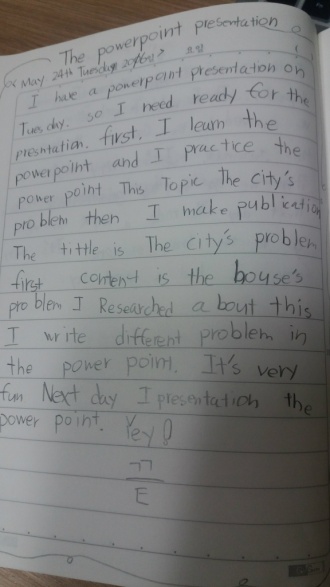 The powerpoint presentation
May 24th Tuesday
I have a powerpoint presentation on
Tuesday. so I need ready for the
presntation. first. I learn the
powerpoint and I practice the
power point This Topic The city's
problem then I make publication
The tittle is The city's problem
first content is the bouse's
problem I Researched a bout this
I write different problem in
the power point. It's very
fun Next day I presentation the
power point. Yey!
ㄱㄱ
E